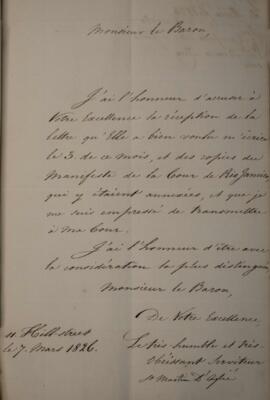 Monsieur le Baron,
J'ai l'honneur d'accuser à
Votre Excellence la réception de la
lettre qu'Elle a bien voulu m'écrire
le 3. de ce mois, et des copies du
Manifeste de la Cour de Rio Janeiro
qui y étaient annexées, et que je
me suis empressé de transmettre
à ma Cour.
J'ai l'honneur d'être avec
la considération la plus distinguée
Monsieur le Baron,
De Votre Excellence,
Hill street
le 7. Mars 1826.
Le très humble et très
obéissant Serviteur